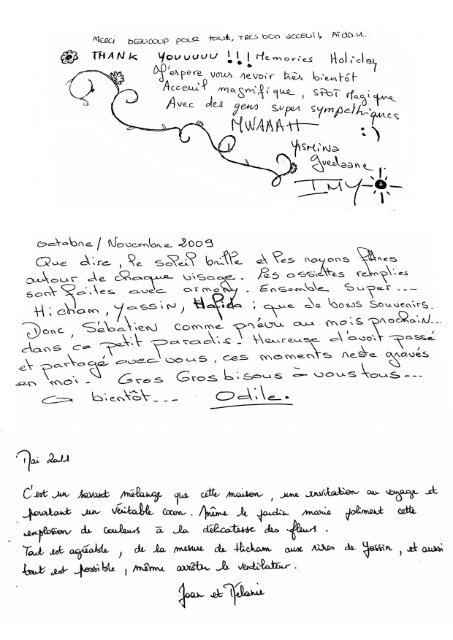 MERCI BEAUCOUP POUR TOUT, TRES BON ACCEUIL
THANK YOUUUUU !!! Memories Holiday
J'espere vous revoir très bientôt
Acceuil magnifique, SPOT Magique
Avec des gens super sympathiques
MWAAAH :)
YASMINA
Guedaane
IMY
octobre/Novembre 2009
Que dire, le soleil brille et les rayons
autour de chaque visage. Les assiettes remplies
sont faites avec Ensemble Super...
Hicham, Yassin, Hafida : que de bons souvenirs.
Donc, Sébatien comme prévu au mois prochain...
dans ce petit paradis. Heureuse d'avoir passé
et partagé avec vous, ces moments reste gravés
en moi. Gros Gros bisous à vous tous...
A bientôt... Odile.
Mai 2011
C'est un savant mélange que cette maison, une invitation au voyage et
pourtant un véritable cocon. Même le jardin marie joliment cette
explosion de couleurs à la délicatesse des fleurs.
Tout est agréable, de la mesure de Hicham aux rires de Yassin, et aussi
tout est possible, même arrêter le ventilateur.
Joan et Mélanie